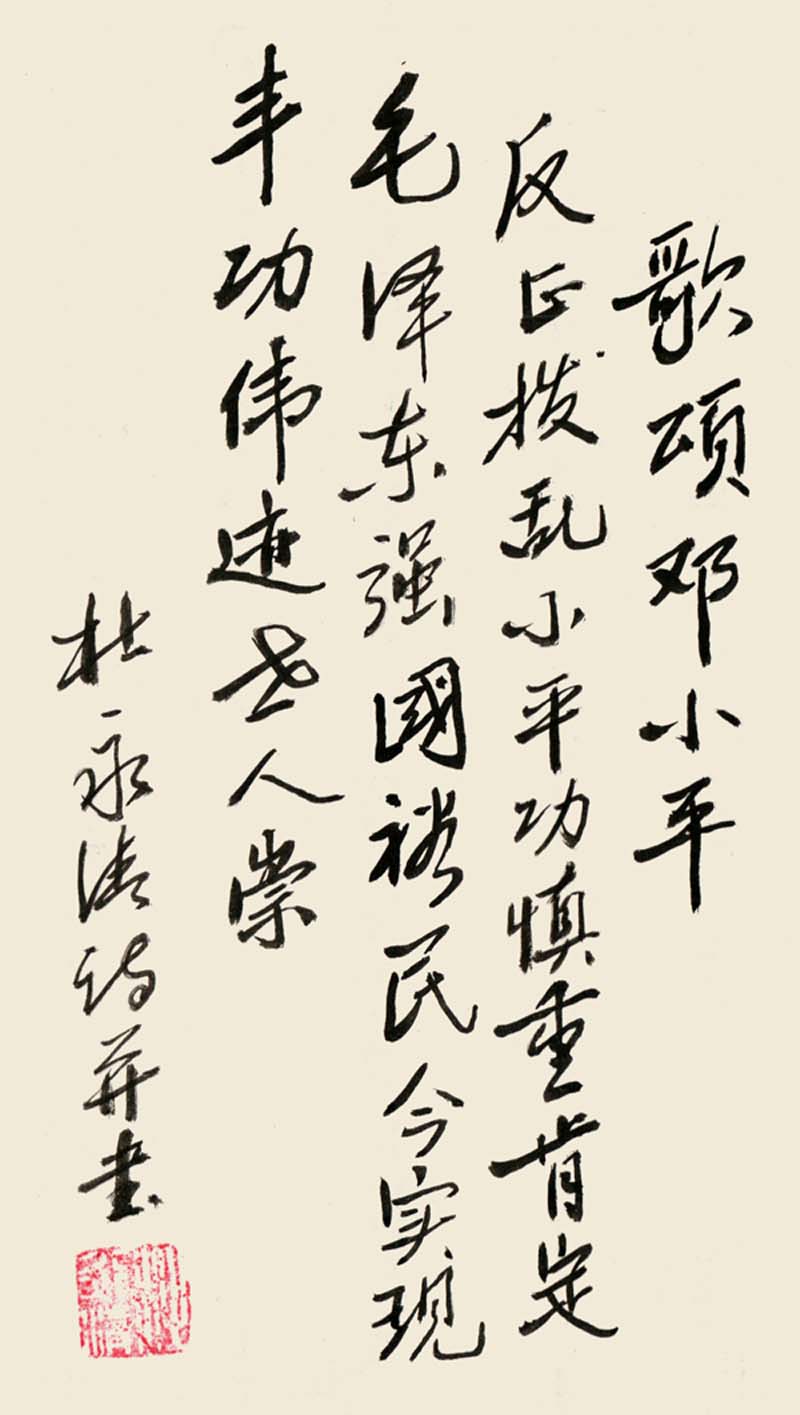 歌颂邓小平
反正拨乱小平功慎重肯定
毛泽东强國裕民今实现
丰功伟迹世人崇
杜永清诗并书